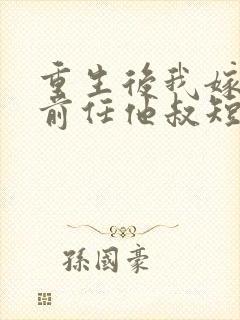 重生後我嫁
前任他叔短
孫國豪